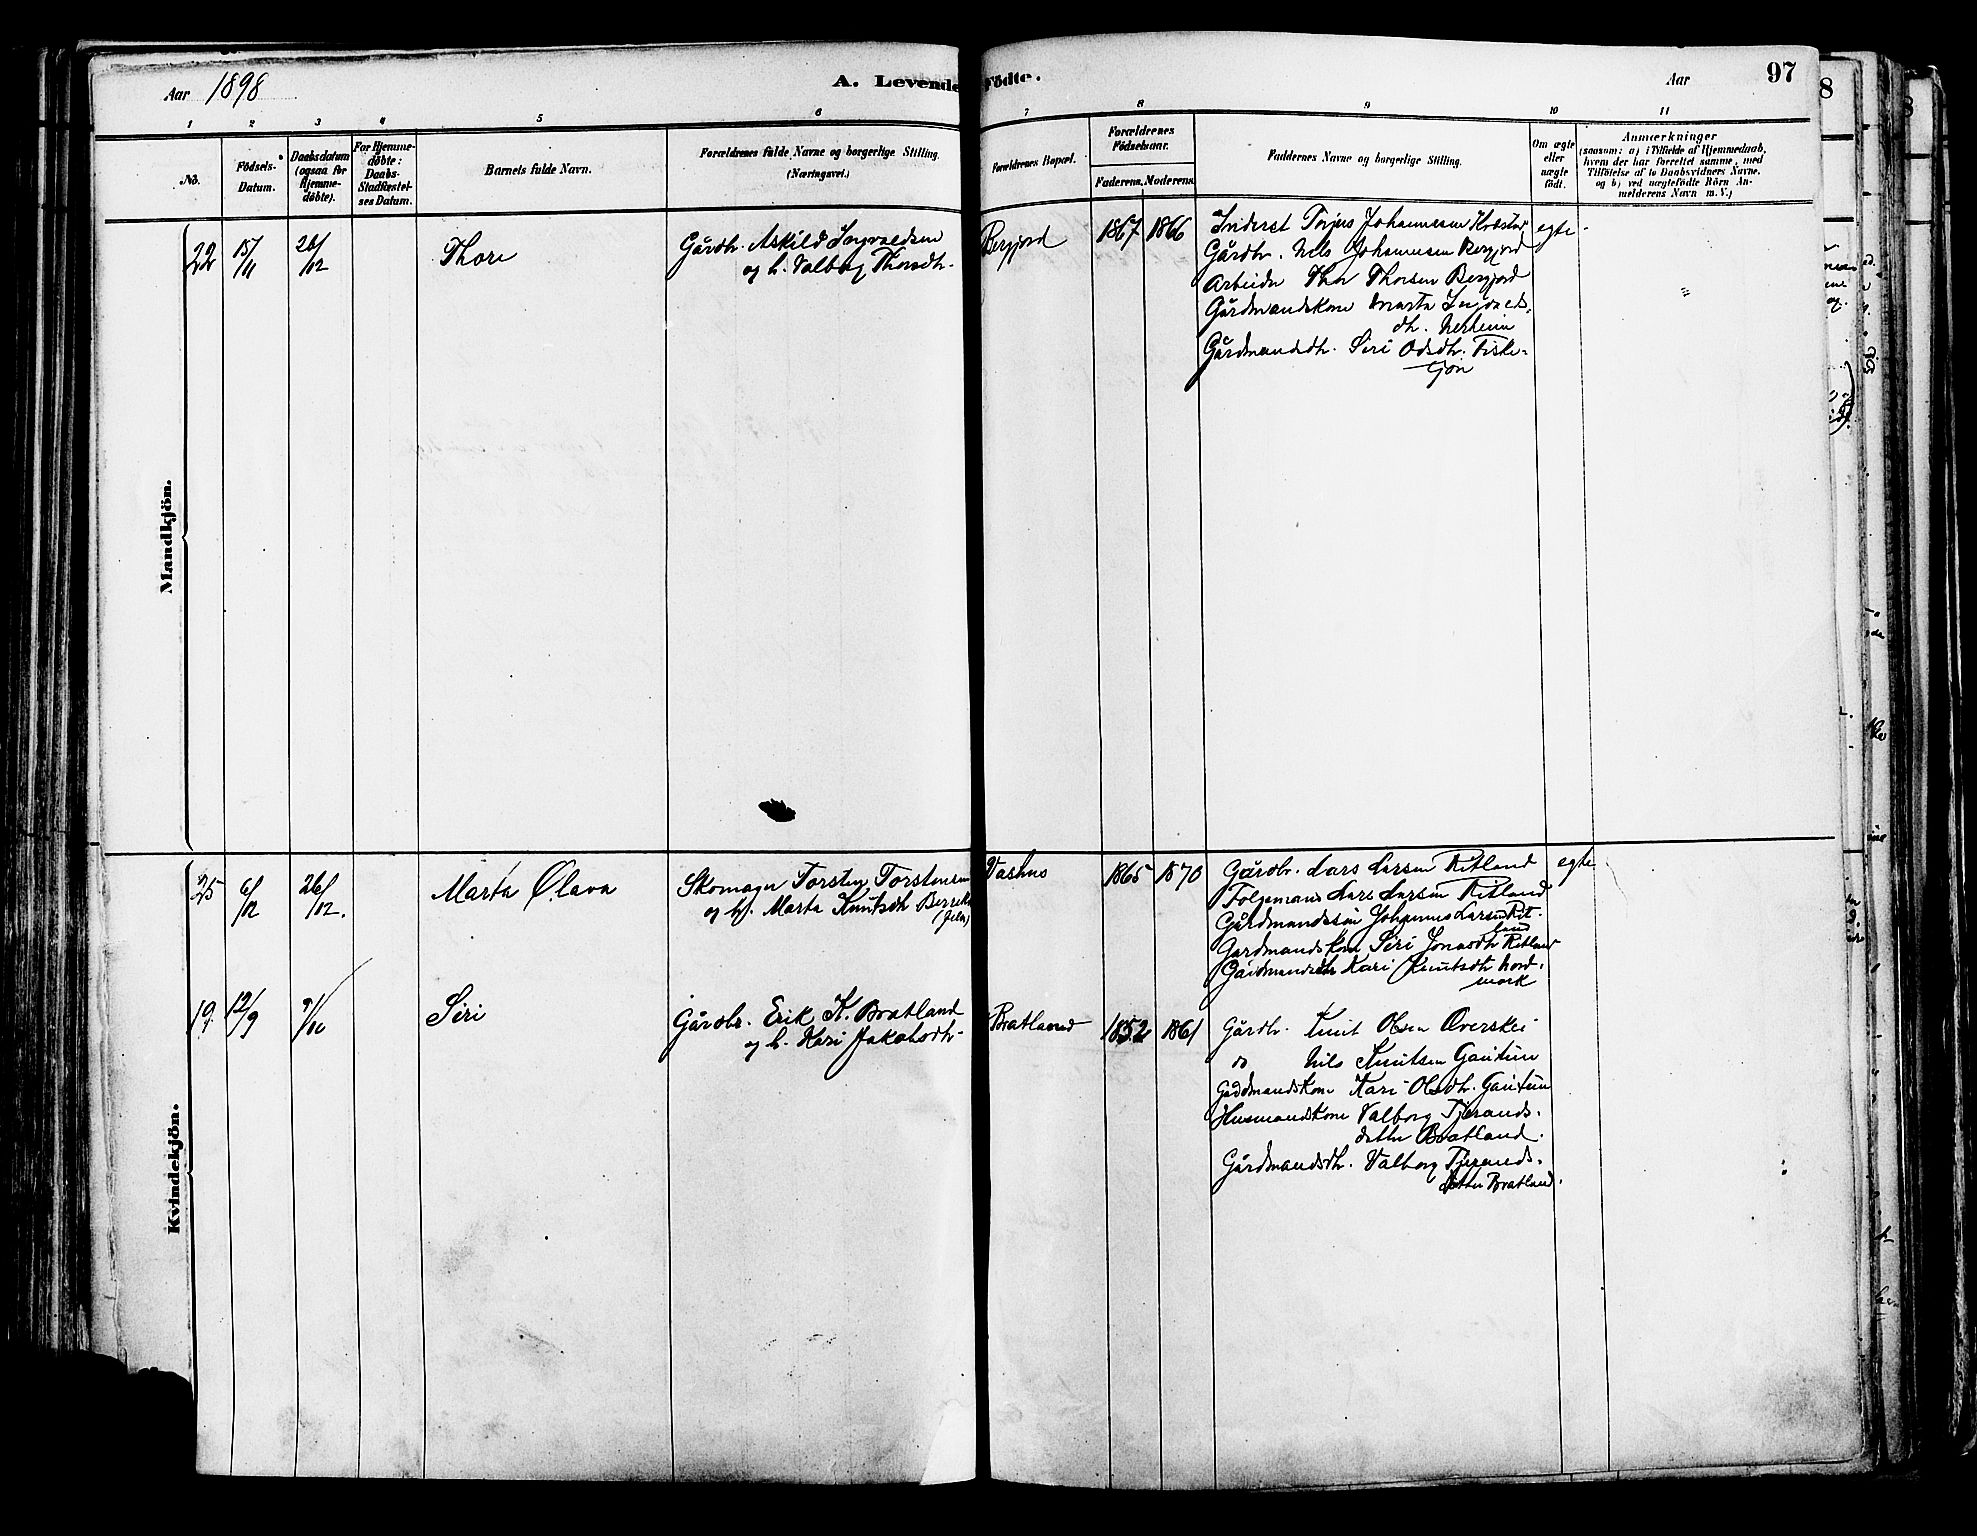 Aar 1898
A. Levende
Födte.
Aar
97
1 2 3 4 5 6 7 8 9 10 11
No.
Födsels-
Datum.
Daabsdatum
(ogsaa for
Hjemme-
døbte).
For Hjemme-
døbte:
Daabs-
Stadfæstel-
ses Datum.
Barnets fulde Navn.
Forældrenes fulde Navne og borgerlige Stilling.
(Næringsvei.)
Forældrenes Bopæl.
Forældrenes
Födselsaar.
Faderens. Moderens.
Faddernes Navne og borgerlige Stilling.
Om ægte
eller
uægte
født.
Anmærkninger
(saasom: a) i Tilfælde af Hjemmedaab,
hvem der har forrettet samme, med
Tilföielse af to Daabsvidners Navne.
og b) ved uægtefödte Börn An-
melderens Navn m. V.)
Mandkjön.
22 15/11 26/12 Thore
Gårdbr. Askild Ingvaldsen
og h. Valborg Thorsdtr.
Bergjord 1867 1866
Inderst Torjus Johannessen
Gårdbr. Nils Johannesen Bergjord
Arbeider Thor Thorsen Bergjord
Gårdmandskone Marta Ingvalds-
dtr. Nerheim
Gårdmandsdtr. Siri Odsdtr. Fiske-
tjøn
egte.
Kvindekjön.
25 6/12 26/12. Marta Olava
Skomager Torsten Torstensen
og h. Marta Knutsdtr
(Jelsa)
Vashus 1865 1870
Gårdbr. Lars Larsen Ritland
Følgemand Lars Larsen Ritland
Gårdmandssøn Johannes Larsen Rit-
land
Gardmandskone Siri Jonasdtr Ritland
Gårdmandsdtr Kari Knutsdtr Nord-
mork
egte
19. 12/9 9/10 Siri
Gårdbr. Erik K. Bratland
og h. Kari Jakobsdtr.
Bratland 1852 1861
Gårdbr. Knut Olsen Øverskei
do Nils Knutsen Gautun
Gardmandskone Kari Olsdtr. Gautun
Husmandskone Valborg Tjerands-
datter Bratland.
Gårdmandsdtr. Valborg Tjerands-
datter Bratland.